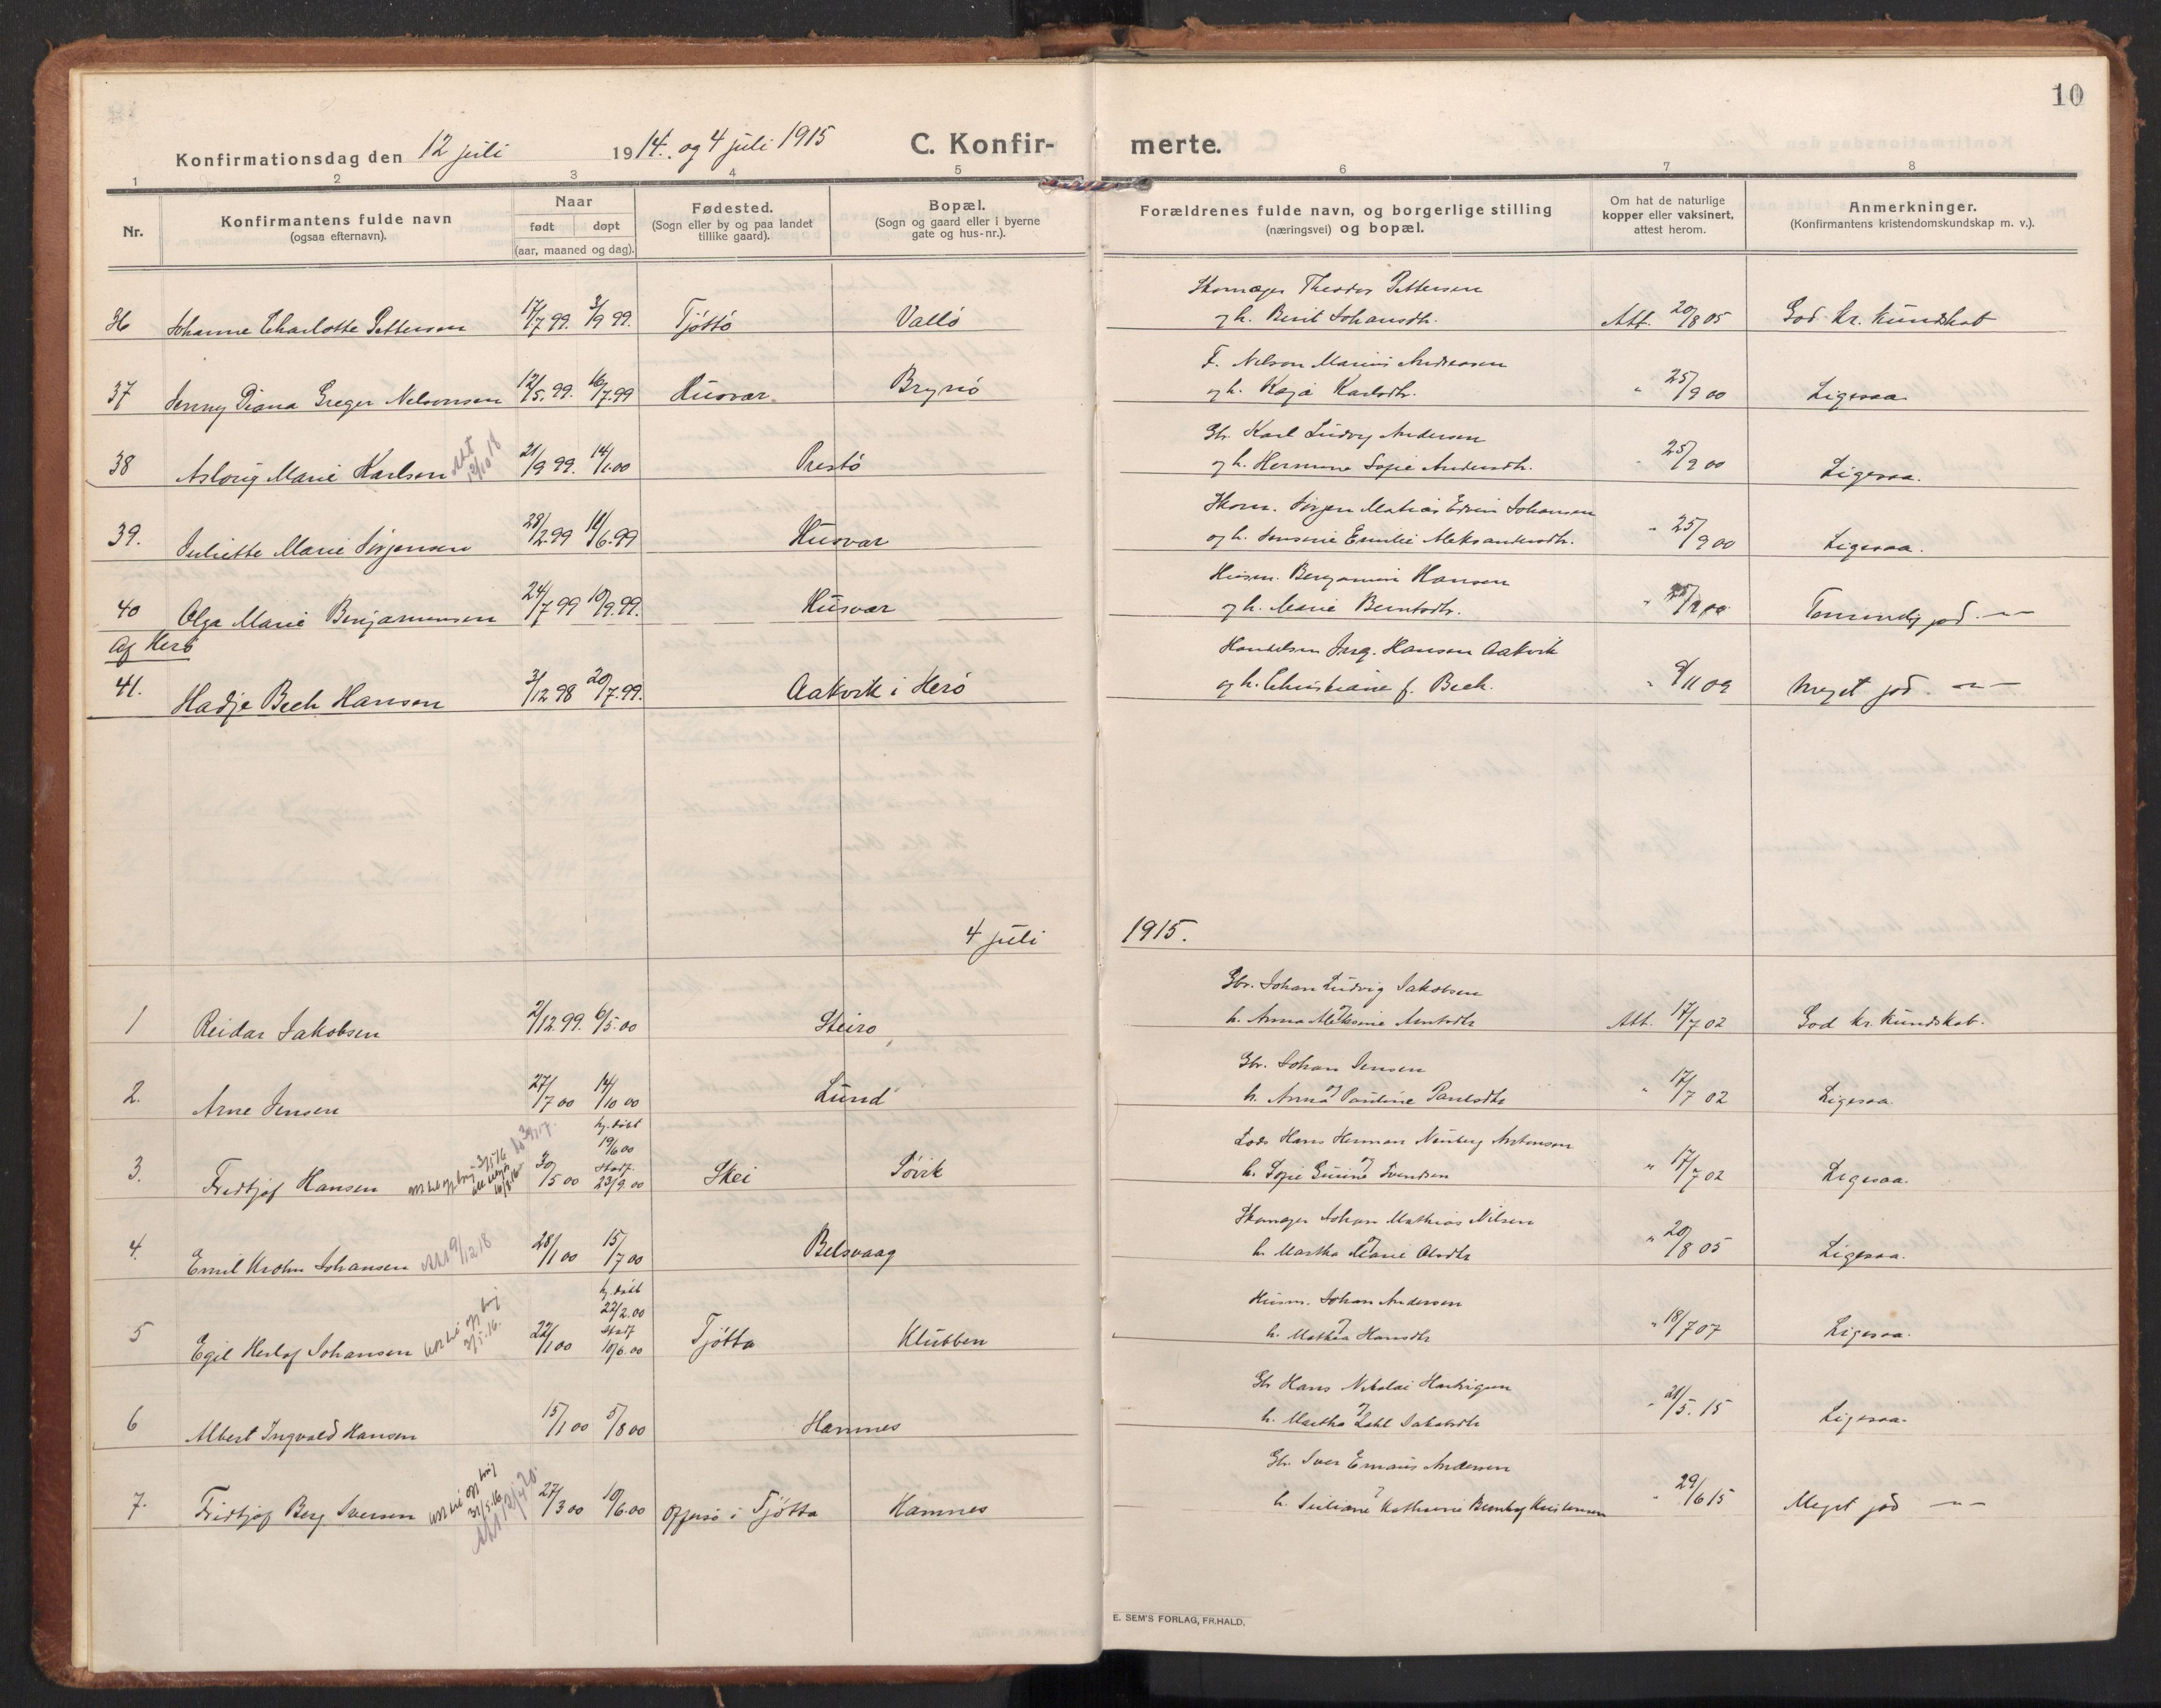 10
Konfirmationsdag den 12 juli 1914. og 4 juli 1915 C. Konfirmerte.
1 2 3 4 5 6 7 8
Nr.
Konfirmantens fulde navn
(ogsaa efternavn).
Naar
født døpt
(aar, maaned og dag).
Fødested.
(Sogn eller by og paa landet
tillike gaard).
Bopæl.
(Sogn og gaard eller i byerne
gate og hus-nr.).
Forældrenes fulde navn, og borgerlige stilling
(næringsvei) og bopæl.
Om hat de naturlige
kopper eller vaksinert,
attest herom.
Anmerkninger.
(Konfirmantens kristendomskundskap m. v.).
Skomager Theodor Pettersen
36 Johanne Charlotte Pettersen 17/7 99. 3/9 99. Tjöttö Vallö og h. Berit Johansdtr. Att. 20/8 05 God kr. Kundskab
F. Nelson Marius Andreasen
37 Jenny Diana Greger Nelsonsen 12/5. 99. 16/7.99 Husvær. Brynö og h. Kaja Karlsdtr. " 25/9 00 Ligesaa.
Gbr. Karl Ludvig Andersen
38 Aslaug Marie Karlsen Att 12/10 18 21/9 99. 14/1.00 Prestö og h. Hermine Sofie Andersdtr. " 25/9 00 Ligesaa.
Skom. Jörgen Mathias Edvin Johansen
39. Juliette Marie Jörgensen 28/2.99 11/6.99 Husvær og h. Jensine Emilie Aleksandersdtr. " 25/9 00 Ligesaa.
Husm. Benjamin Hansen
40 Olga Marie Benjaminsen 24/7 99 10/9.99. Husvær og h. Marie Berntsdtr. " 25/9 00 Temmelig god. —
Af Herö
Handelsm. Ing. Hansen Aakvik
41. Hadje Bech Hansen 3/12 98 20/7.99. Aakvik i Herö og h. Christiane f. Bech. " 9/11 09 Meget god. —
4 juli 1915.
Gbr. Johan Ludvig Jakobsen
1 Reidar Jakobsen 2/12.99. 6/5.00 Steiro og h. Anna Aleksine Arntsdtr Att. 17/7 02 God kr. Kundskab.
Gbr. Johan Jensen
2. Arne Jensen 27/7 00 14/10 00 Lund og h. Anna Pauline Paulsdtr " 17/7 02 Ligesaa.
hj. döbt
19/6 00
Lods Hans Herman Nünberg Antonsen
3. Fredtjof Hansen 30/5 00 Stadf. 23/9.00 Skei Sövik og h. Sofie Gurine Svendsen " 17/7 02 Ligesaa.
Skomager Johan Mathias Nilsen
4. Emil Krohn Johansen Att 9/12 18 28/1 00 15/7 00 Belsvaag og h. Martha Marie Olsdtr " 20/8 05 Ligesaa.
hj. döbt
22/2.00
Husm. Johan Andersen
5 Egil Herlof Johansen 22/1 00 Stadf 10/6.00 Tjötta Klubben og h. Mathea Hansdtr " 18/7 07 Ligesaa.
Gbr Hans Nikolai Hartvigsen
6 Albert Ingvald Hansen 15/1 00 5/8 00 Hamnes og h. Martha Dahl Jakobsdtr " 21/5. 15 Ligesaa.
Gbr. Iver Emaus Andersen
7. Fridtjof Berg Iversen 27/3 00 10/6.00 Offersö i Tjötta Hamnes og h. Juliane Kathrine Bemberg Kristensen " 29/6 15 Meget god —
E. SEM'S FORLAG, FR.HALD.